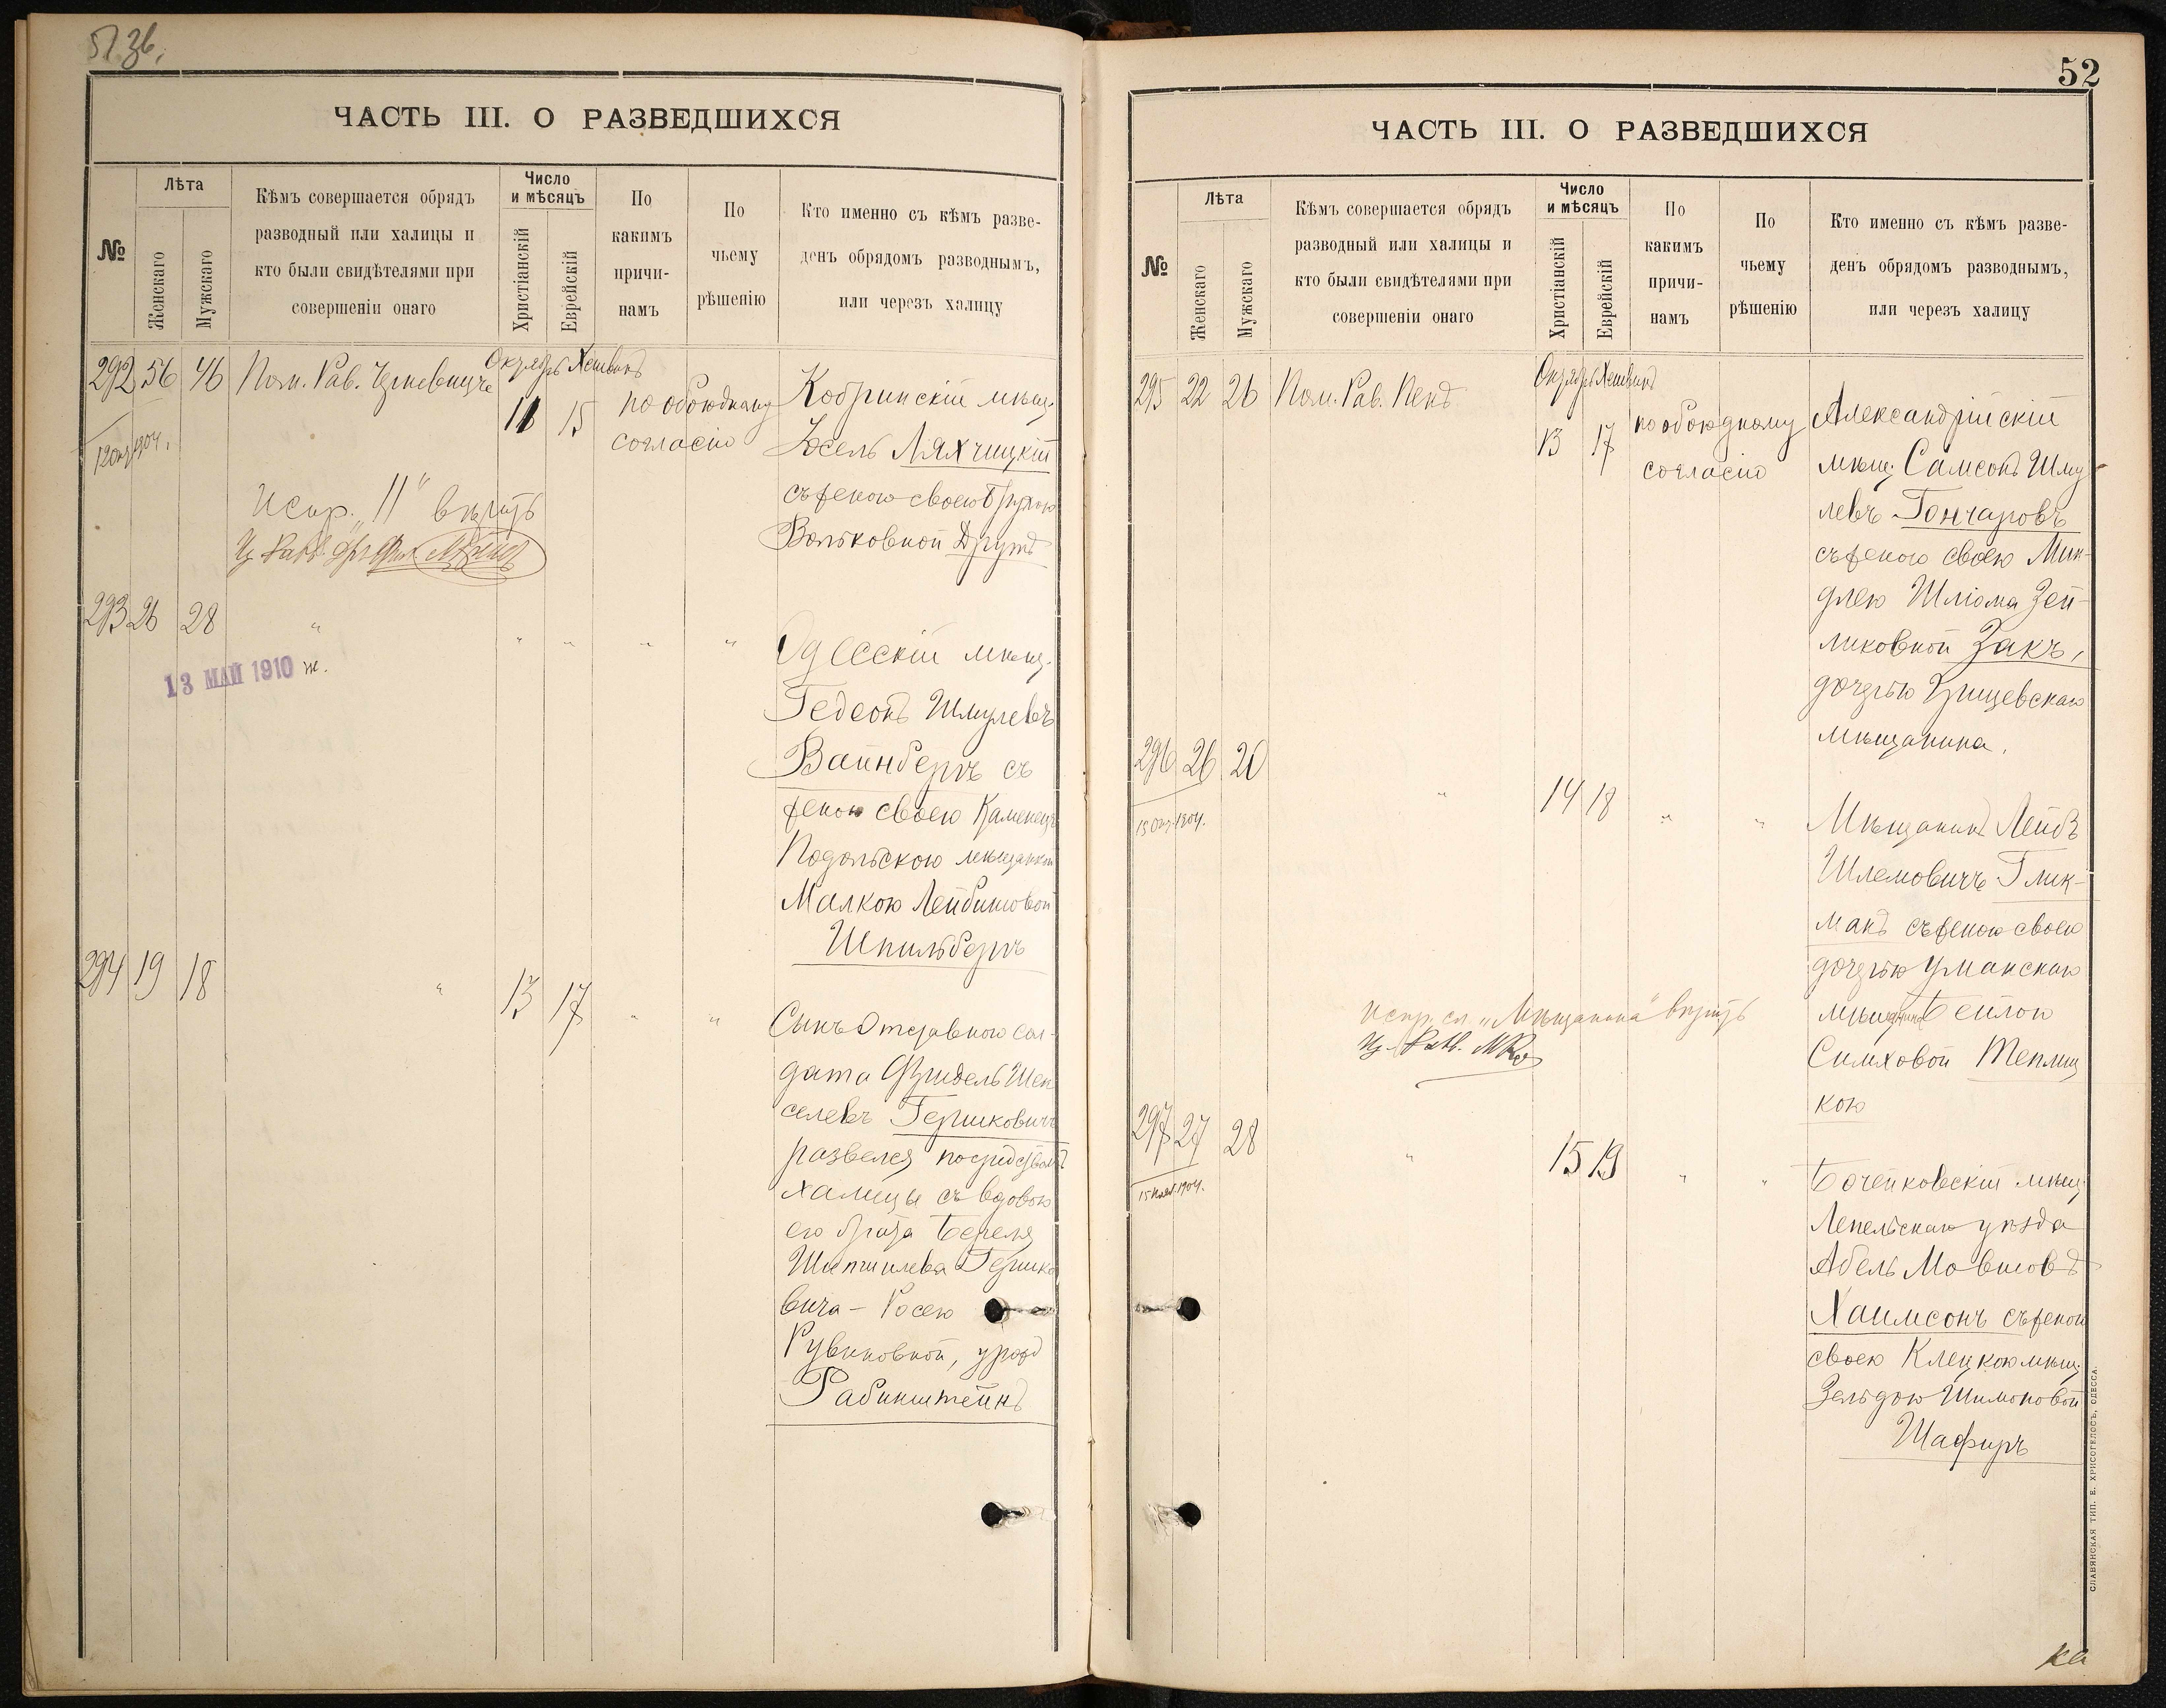 51 зв.
ЧАСТЬ III. О РАЗВЕДШИХСЯ
№
Лѣта
Женскаго
Мужскаго
Кѣмъ совершается обрядъ
разводный или халицы и
кто были свидѣтелями при
совершеніи онаго
Число
и мѣсяцъ
Христіанскій
Еврейскій
По
какимъ
причи-
намъ
По
чьему
рѣшенію
Кто именно съ кѣмъ разве-
денъ обрядомъ разводнымъ,
или черезъ халицу
292 56 46 Пом. Рав.
Октябрь Хешванъ
11 15
по обоюдному
согласію
Кобринскій мѣщ.
Іосель Ляхчицкій
съ женою своею
Вольковной Другъ
12 окт 1904.
Испр. „11“ вѣрить
293 26 28 " " " " "
13 МАЙ 1910 ж.
Одесскій мѣщ.
Гедеонъ Шмулевъ
Вайнбергъ съ
женою своею Каменецъ
Подольскою мѣщанкой
Малкою Лейбишовой
Шпильбергъ
294 19 18 " 13 17 " "
Сынъ Отставного сол-
дата Фридель Шеп
селевъ Гершковичъ
развелся посредствомъ
халицы съ вдовою
его брата Береля
Шепшилева Гершко
вича - Росею
Рувиновной, урожд
Рабинштейнъ
52
ЧАСТЬ III. О РАЗВЕДШИХСЯ
№
Лѣта
Женскаго
Мужскаго
Кѣмъ совершается обрядъ
разводный или халицы и
кто были свидѣтелями при
совершеніи онаго
Число
и мѣсяцъ
Христіанскій
Еврейскій
По
какимъ
причи-
намъ
По
чьему
рѣшенію
Кто именно съ кѣмъ разве-
денъ обрядомъ разводнымъ,
или черезъ халицу
295 22 26 Пом. Рав. Пенъ
Октябрь Хешванъ
13 17
по обоюдному
согласію
Александрійскій
мѣщ. Самсонъ Шму
левъ Гончаровъ
съ женою своею Мин-
длею Шліома Зей-
ликовной Закъ,
дочерью
мѣщанина.
296 26 20 " 14 18 " "
15 Окт. 1904.
Мѣщанинъ Лейбъ
Шлемовичъ Глик-
манъ съ женою своею
дочерью Уманскаго
мѣщанина Бейлою
Симховой Теплиц
кою
испр. сл. „Мѣщанина“ вѣрить
297 27 28 " 15 19 " "
15 1904.
Бочейковскій мѣщ.
Лепельскаго уѣзда
Абель Мовшовъ
Хаимсонъ съ женой
своею Клецкою мѣщ.
Зельдою Шимоновой
Шафиръ
СЛАВЯНСКАЯ ТИП. Е. ХРИСОГЕЛОСЪ, ОДЕССА.